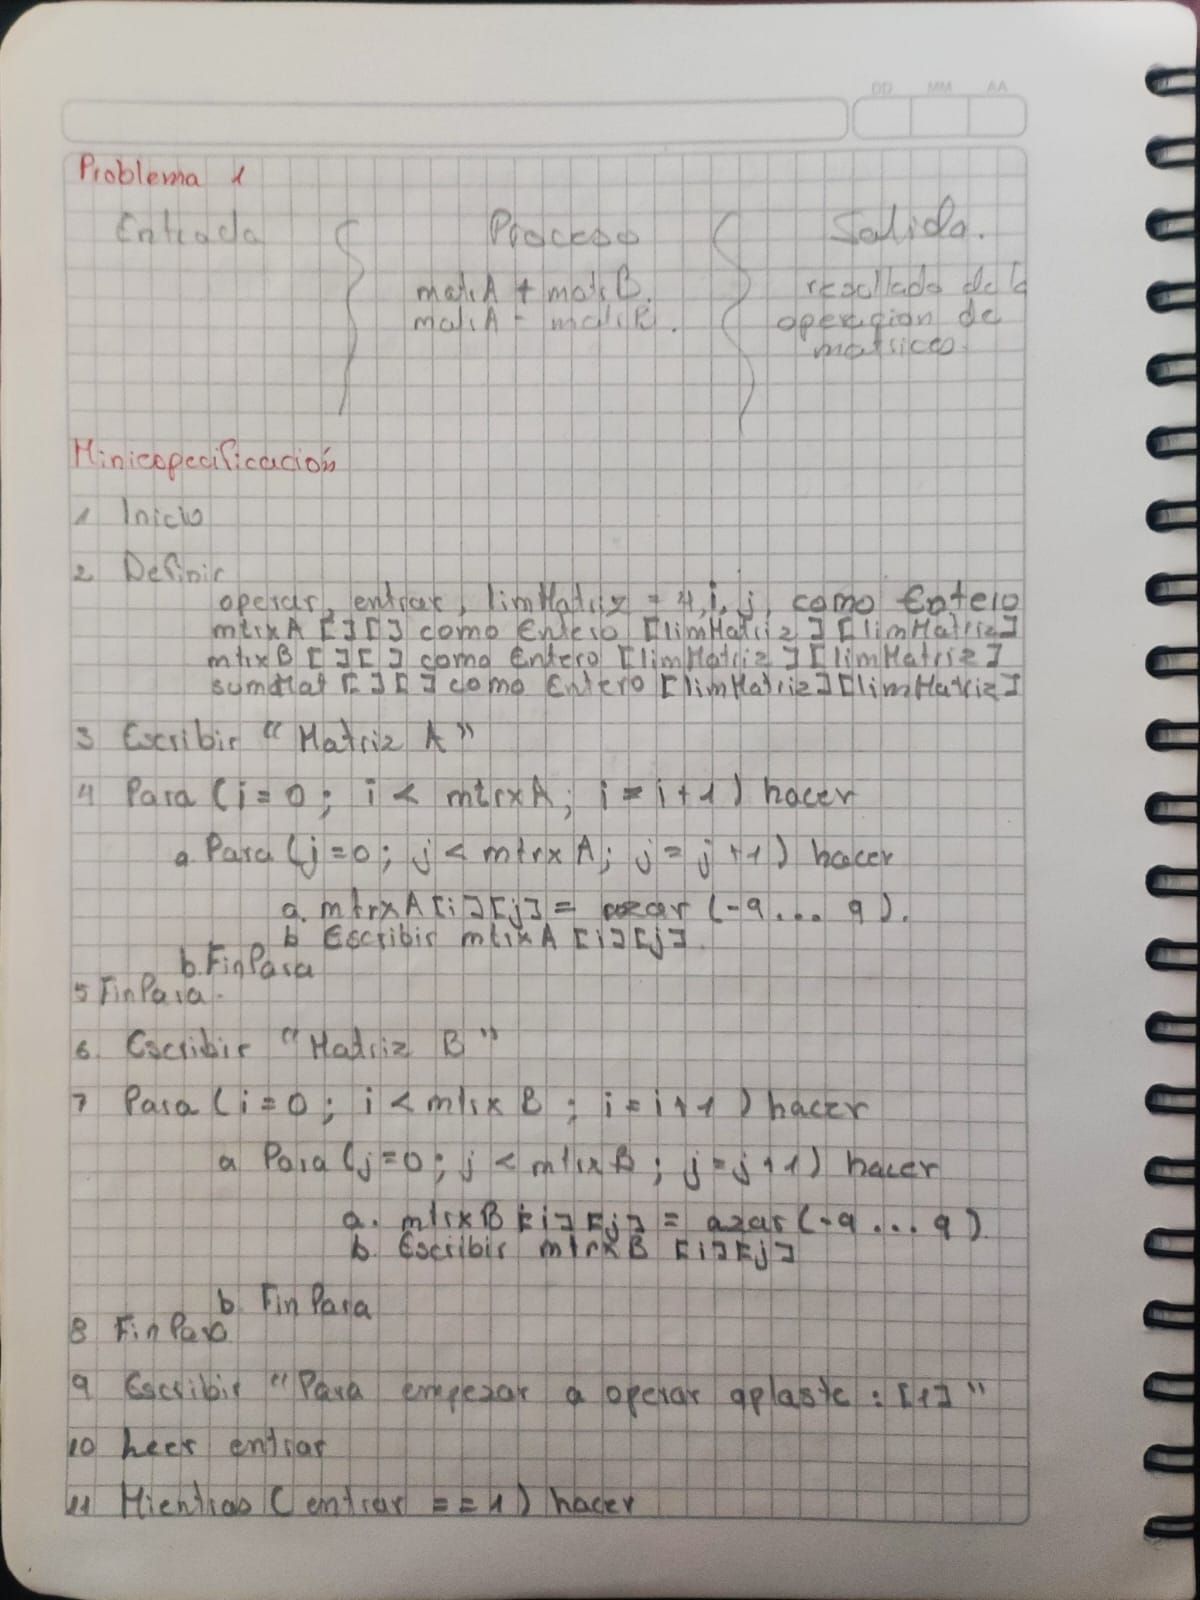 DD MM AA
Problema 1
Entrada Proceso Salida.
matrA + matrB. resultado de la
matrA - matrB. operación de
matrices.
Miniespecificación
1 Inicio
2. Definir
operar, entrar, limMatriz = 4, i, j, como Entero
mtrxA [][] como Entero [limMatriz][limMatriz]
mtrxB [][] como Entero [limMatriz][limMatriz]
sumaMat [][] como Entero [limMatriz][limMatriz]
3 Escribir "Matriz A"
4 Para (i=0; i < mtrxA; i = i+1) hacer
a. Para (j=0; j < mtrxA; j = j+1) hacer
a. mtrxA[i][j] = azar (-9... 9).
b Escribir mtrxA [i][j].
b. FinPara
5 FinPara.
6. Escribir "Matriz B"
7 Para (i=0; i < mtrxB; i = i+1) hacer
a Para (j=0; j < mtrxB; j=j+1) hacer
a. mtrxB [i][j] = azar (-9...9)
b. Escribir mtrxB [i][j]
b. FinPara
8 FinPara
9 Escribir "Para empezar a operar aplaste: [1]"
10 Leer entrar
11 Mientras (entrar == 1) hacer